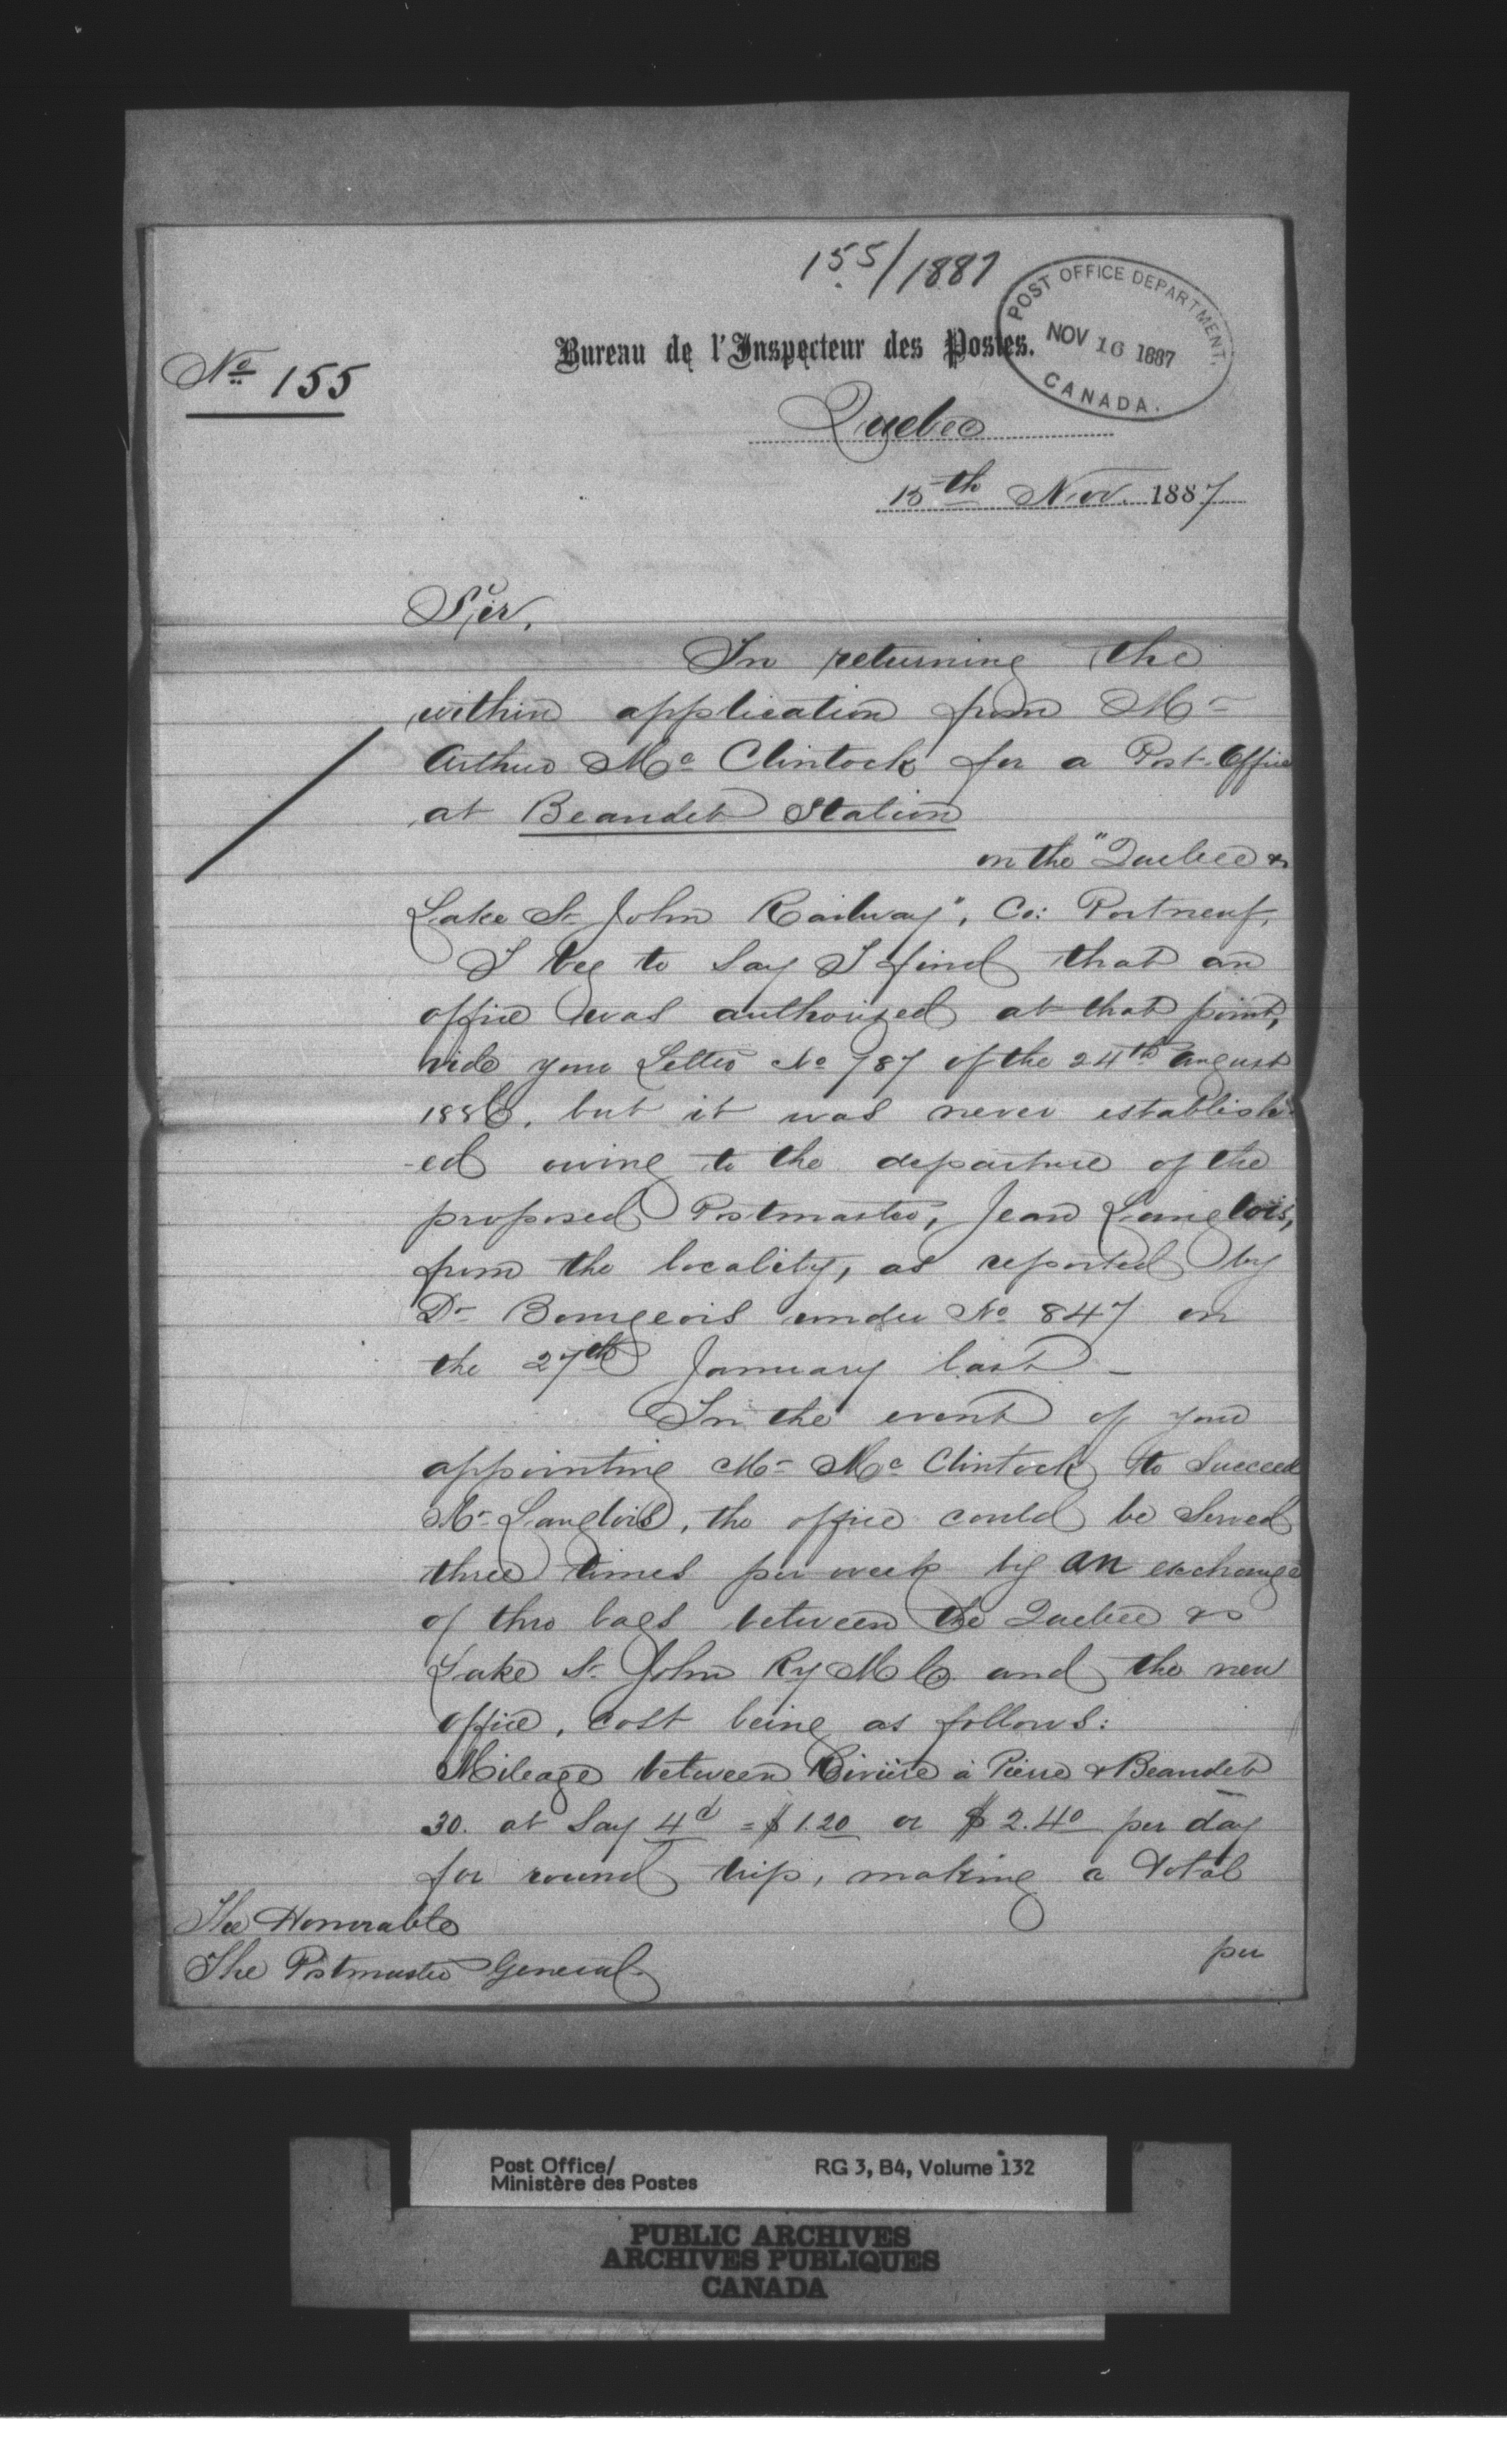 155/1887
POST OFFICE DEPARTMENT.
NOV 16 1887
CANADA.
Bureau de l'Inspecteur des Postes.
No 155
Quebec
15th Nov. 1887
Sir,
In returning the
within application from Mr
Arthur Mc Clintock for a Post Office
at Beaudet Station
on the "Quebec &
Lake St John Railway", Co: Portneuf,
I beg to say I find that an
office was authorized at that point,
vide your Letter No 787 of the 24th August
1886, but it was never establish
-ed owing to the departure of the
proposed Postmaster, Jean Langlois,
from the locality, as reported by
Dr Bourgeois under No 847 on
the 27th January last -
In the event of your
appointing Mr Mc Clintock to succeed
Mr Langlois, the office could be served
three times per week by an exchange
of thro bags between the Quebec &
Lake St John Ry M C. and the new
office, cost being as follows:
Mileage between Rivière à Pierre & Beaudet
30. at say 4d = $1.20 or $2.40 per day
for round trip, making a total
The Honorable
The Postmaster General.
per
Post Office/
Ministère des Postes
RG 3, B4, Volume 132
PUBLIC ARCHIVES
ARCHIVES PUBLIQUES
CANADA